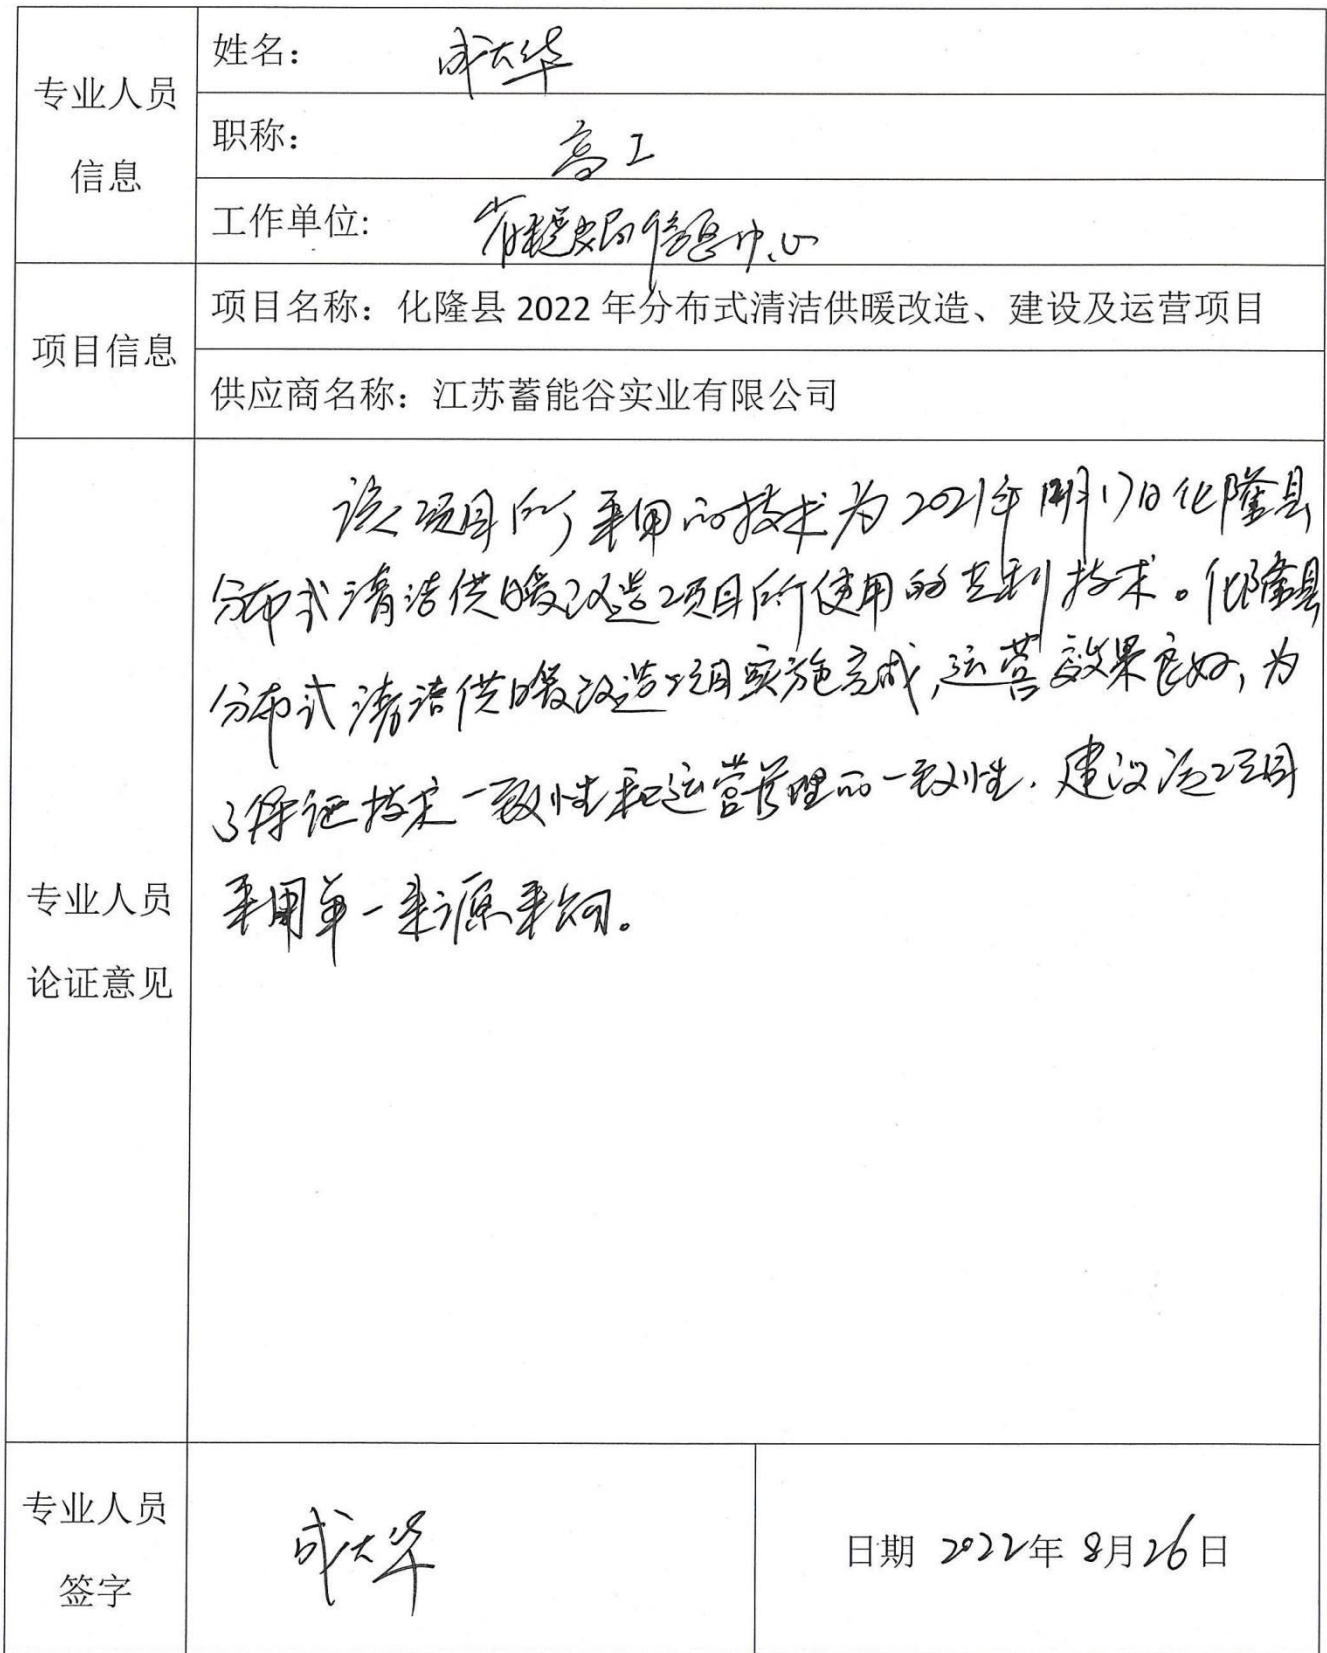 专业人员
信息
姓名: 成大华
职称: 高工
工作单位: 省 信息中心
项目信息
项目名称: 化隆县 2022 年分布式清洁供暖改造、建设及运营项目
供应商名称: 江苏蓄能谷实业有限公司
专业人员
论证意见
该项目所采用的技术为2021年 月17日化隆县
分布式清洁供暖改造项目所使用的专利技术。化隆县
分布式清洁供暖改造项目实施完成,运营效果良好,为
了保证技术一致性和运营管理的一致性,建议该项目
采用单一来源采购。
专业人员
签字
成大华
日期 2022年 8月26日